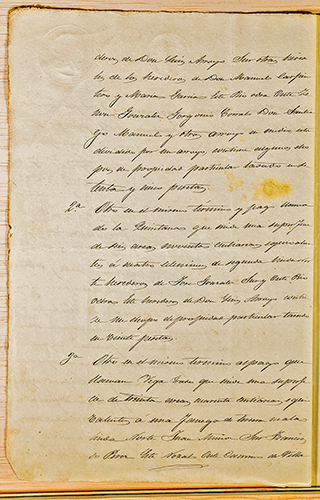 dero, de Don Luis Arroyo Sur otra, here
les de los herederos de Don Manuel Carpin
tero y Maria Garcia Este Rio
Gonzalez Gregorio Corral Don Santia
go Manuel y otros, arroyo en medio esta
dividida por un arroyo, contiene algunos cho
pos, de propiedad particular tasada en se
tenta y una pesetas,
2.ª Otra en el mismo termino y pago llama
do la Quintana que mide una superficie
de seis areas, noventa centiareas equivalen
tes á cuatro celemines, de segunda
te herederos de Jose Gonzalez Sur Rio
Este herederos de Don Luis Arroyo contie
ne un chopo de propiedad particular tasada
en veinte pesetas.
3ª Otra en el mismo termino al pago que
llaman Vega que mide una superfi
cie de treinta areas, noventa centiareas, equi
valentes, á una fanega de terra mala
linda Norte Juan Muñoz Sur Francis
co Este Oeste Camino de Villa